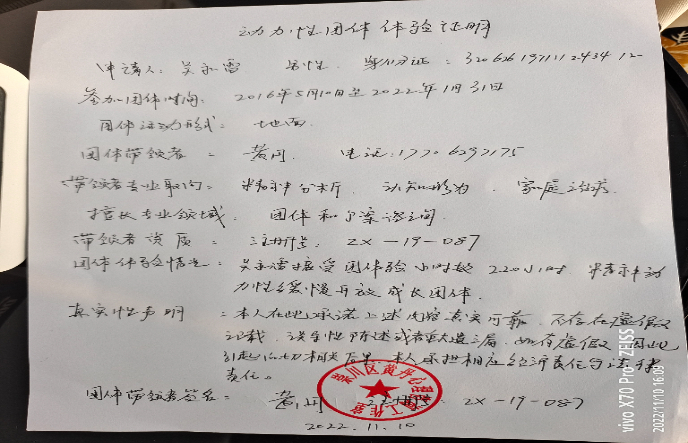 动力性团体体验证明
申请人：吴永雷 男性. 身份证：
参加团体时间：2016年5月10日至2022年1月31日
团体活动形式：地面.
团体带领者：黄丹. 电话：17706297175
带领者专业取向：精神分析 认知行为、家庭治疗.
擅长专业领域. 团体和个案咨询.
带领者资质：注册号：ZX-19-087
团体体验情况：吴永雷接受团体体验小时数220小时 精神动
力性缓慢开放成长团体.
真实性声明：本人在此承诺上述内容真实可靠，不存在虚假
记载，误导性陈述或者重大遗漏，如有虚假 因此
引起的一切相关后果，本人承担相应经济责任与法律
责任。
团体带领者签名：黄丹 ZX-19-087
2022.11.10
vivo X70 Pro+ ZEISS
2022/11/10 16:09